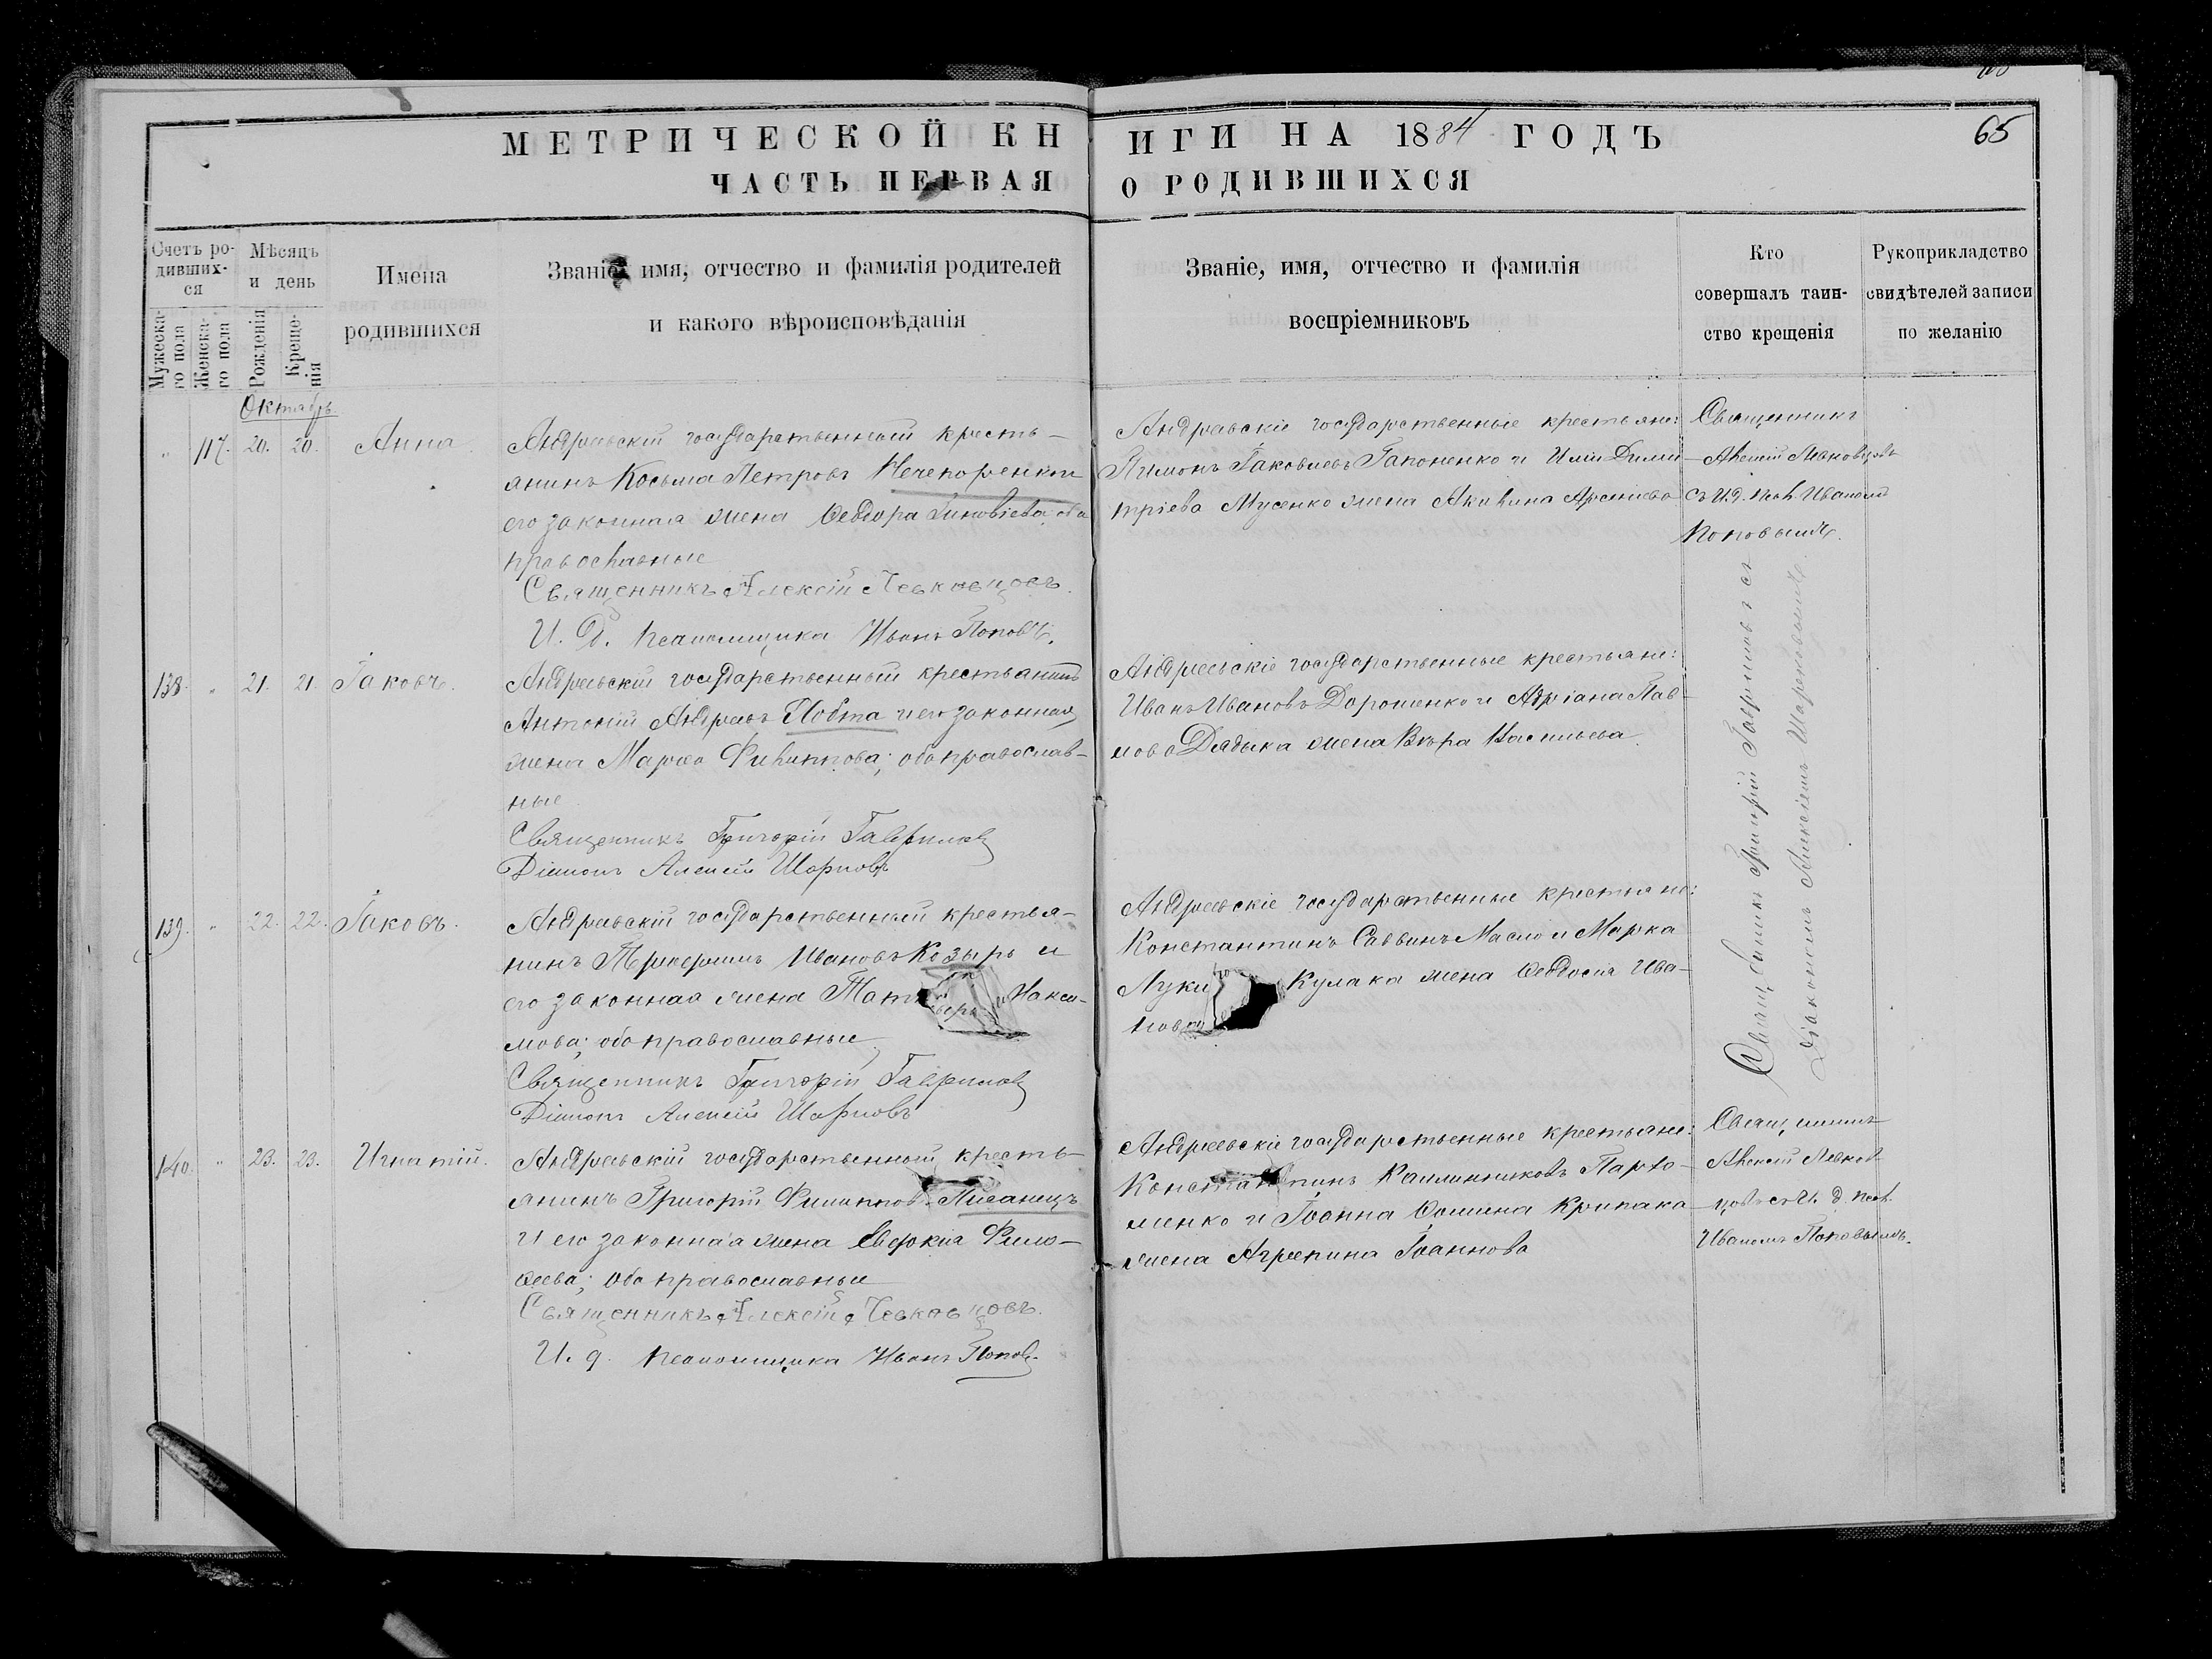 МЕТРИЧЕСКОЙ КНИГИ НА 1884 ГОДЪ
65
ЧАСТЬ ПЕРВАЯ О РОДИВШИХСЯ
Счетъ ро-
дивших-
ся
Мужеска-
го пола
Женска-
го пола
Мѣсяцъ
и день
Рожденія
Креще-
нія
Имена
родившихся
Званіе, имя, отчество и фамилія родителей
и какого вѣроисповѣданія
Званіе, имя, отчество и фамилія
воспріемниковъ
Кто
совершалъ таин-
ство крещенія
Рукоприкладство
свидѣтелей записи
по желанію
Октябрь
" 117. 20. 20. Анна
Андреевскій государственный кресть-
янинъ Косьма Петровъ Нечепоренко и
его законная жена Ѳеодора Зиновіева, оба
православные
Священникъ Алексій Левковцовъ.
И. д. псаломщика Иванъ Поповъ.
Андреевскіе государственные крестьяне:
Іаковлевъ Гапоненко и Дими-
тріева Мусенко жена Акилина Арсеніева
Священникъ
Алексій Левковцовъ
съ И. д. псал. Иваномъ
Поповымъ.
138. " 21. 21. Іаковъ.
Андреевскій государственный крестьянинъ
Антоній Андреевъ и его законная
жена Марѳа Филиппова; оба православ-
ные
Священникъ Григорій Гавриловъ
Діаконъ Алексій
Андреевскіе государственные крестьяне:
Иванъ Ивановъ Дорошенко и Адріана Пав-
лова Дядыка жена Вѣра Васильева.
Священникъ Григорій Гавриловъ съ
Діакономъ Алексіемъ
139. " 22. 22. Іаковъ.
Андреевскій государственный крестья-
нинъ Ивановъ Козырь и
его законная жена Макси-
мова; оба православные
Священникъ Григорій Гавриловъ
Діаконъ Алексій
Андреевскіе государственные крестьяне:
Константинъ Саввинъ Масло и Марка
Луки Кулака жена Ѳеодосія Ива-
нова
140. " 23. 23. Игнатій.
Андреевскій государственный кресть-
янинъ Григорій Филипповъ Лисанецъ
и его законная жена Евдокія Фило-
ѳеева; оба православные
Священникъ Алексій Левковцовъ.
И. д. псаломщика Иванъ Поповъ.
Андреевскіе государственные крестьяне:
Константинъ Каллинниковъ Пархо-
менко и Іоанна Ѳомина Крипака
жена Агрепина Іоаннова
Священникъ
Алексій Левков-
цовъ съ И. д. псал.
Иваномъ Поповымъ.